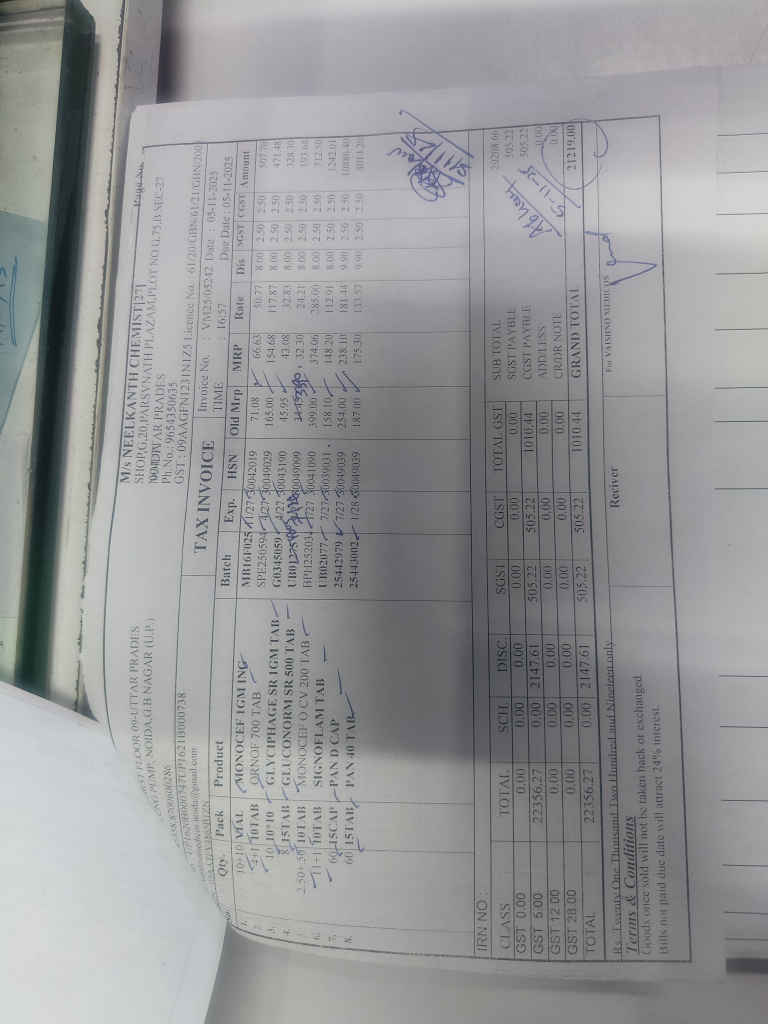 FIRST FLOOR 09-UTTAR PRADES
CNG PUMP, NOIDA,G.B NAGAR (U.P.)
M/s NEELKANTH CHEMIST[27]
SHOP,G,20,PARSVNATH PLAZAM,PLOT NO G,75,B SEC-27
Ph.No.: 9654350635
GST : 09AAGFN1231N1Z5 Licence No. : 61/20/GBN/61/21/GBN/2005
Page No.
TAX INVOICE
Invoice No. : VM25/05242 Date : 05-11-2025
TIME : 16:57 Due Date : 05-11-2025
Qty. Pack Product Batch Exp. HSN Old Mrp MRP Rate Dis SGST CGST Amount
1. 10+10 VIAL MONOCEF 1GM ING MB16F025 11/27 30042019 71.08 66.63 50.77 8.00 2.50 2.50 507.70
2. 4+1 10TAB ORNOF 700 TAB SPE250594 4/27 30049029 165.00 154.68 117.87 8.00 2.50 2.50 471.48
3. 10 10*10 GLYCIPHAGE SR 1GM TAB G0345059 4/27 30043190 45.95 43.08 32.83 8.00 2.50 2.50 328.30
4. 8 15TAB GLUCONORM SR 500 TAB 30049099 32.30 24.21 8.00 2.50 2.50 193.68
5. 2.50+.50 10TAB MONOCEF O CV 200 TAB BPH252034 1/27 30041090 399.00 374.06 285.00 8.00 2.50 2.50 712.50
6. 11+1 10TAB SIGNOFLAM TAB UB02077 7/27 30039031 158.10 148.20 112.91 8.00 2.50 2.50 1242.01
7. 60 15CAP PAN D CAP 25442979 7/27 30049039 254.00 238.10 181.44 9.90 2.50 2.50 10886.40
8. 60 15TAB PAN 40 TAB 25443002 1/28 30049039 187.00 175.30 133.57 9.90 2.50 2.50 8014.20
IRN NO :
CLASS TOTAL SCH. DISC. SGST CGST TOTAL GST
GST 0.00 0.00 0.00 0.00 0.00 0.00 0.00
GST 5.00 22356.27 0.00 2147.61 505.22 505.22 1010.44
GST 12.00 0.00 0.00 0.00 0.00 0.00 0.00
GST 28.00 0.00 0.00 0.00 0.00 0.00 0.00
TOTAL 22356.27 0.00 2147.61 505.22 505.22 1010.44
SUB TOTAL 20208.66
SGST PAYBLE 505.22
CGST PAYBLE 505.22
ADD/LESS 0.00
CR/DR NOTE 0.00
GRAND TOTAL 21219.00
5-11-25
Rs. Twenty One Thousand Two Hundred and Nineteen only
Terms & Conditions
Goods once sold will not be taken back or exchanged.
Bills not paid due date will attract 24% interest.
Reciver
For VAISHNO MEDICOS